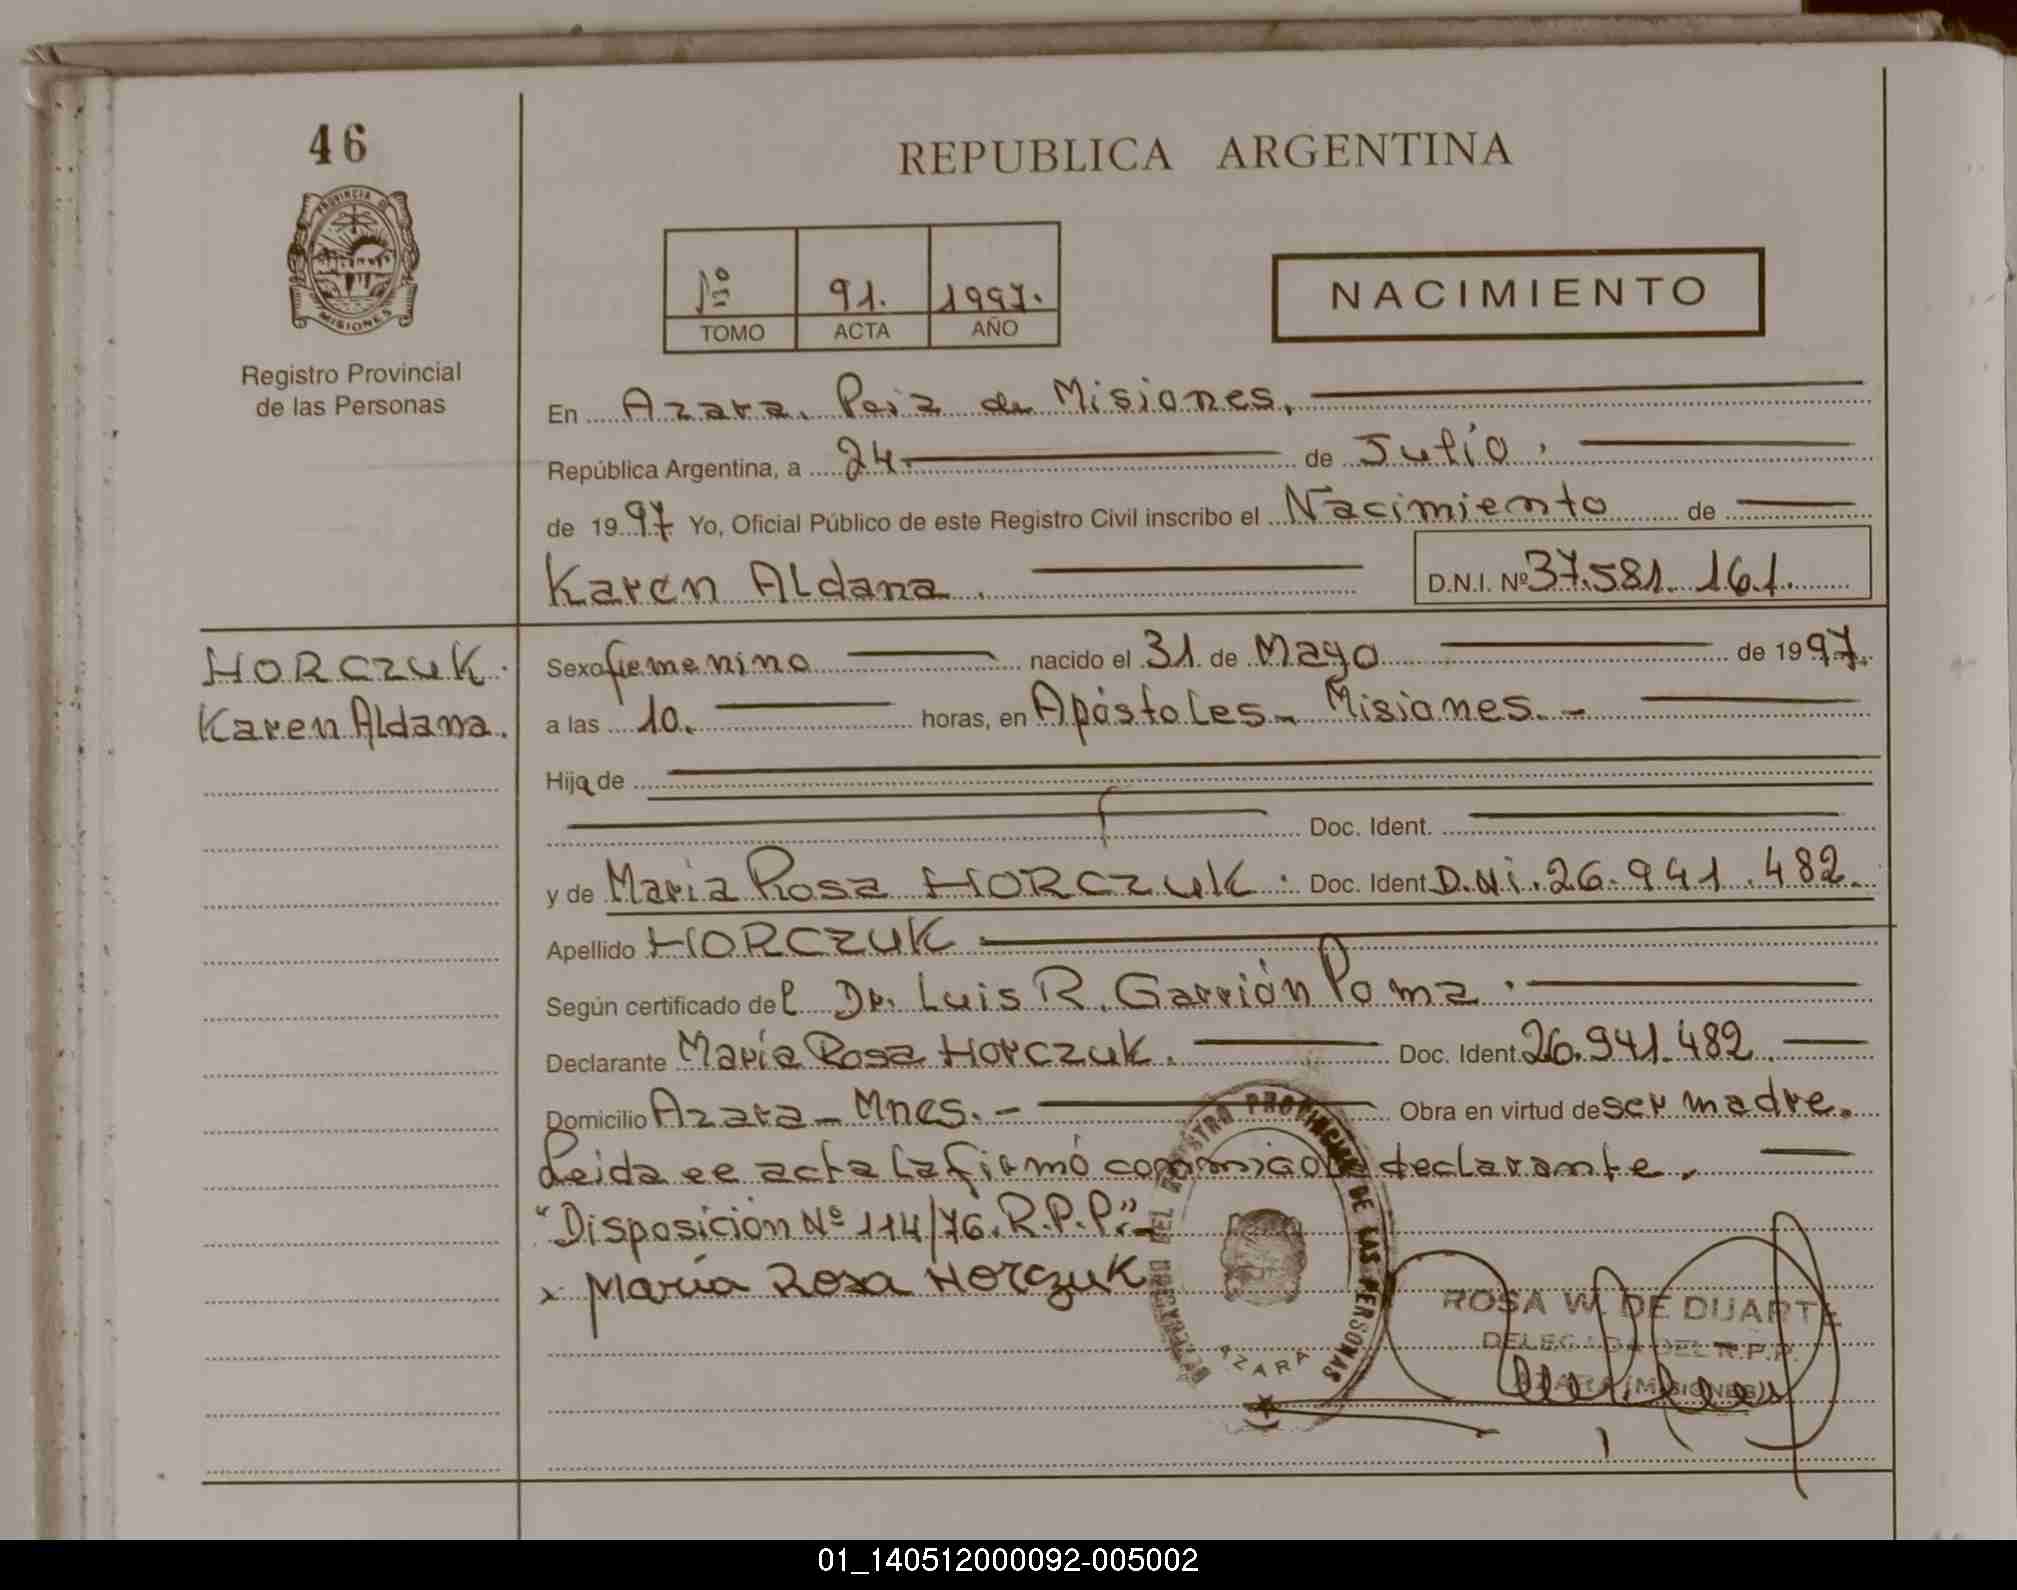 46
PROVINCIA DE
MISIONES
Registro Provincial
de las Personas
REPUBLICA ARGENTINA
1º 91. 1997.
TOMO ACTA AÑO
NACIMIENTO
En Azara. Pcia de Misiones.
República Argentina, a 24 de Julio.
de 1997 Yo, Oficial Público de este Registro Civil inscribo el Nacimiento de
Karen Aldana. D.N.I. Nº 37.581.161.
HORCZUK.
Karen Aldana.
Sexo femenino nacido el 31 de Mayo de 1997.
a las 10. horas, en Apóstoles - Misiones. -
Hija de
Doc. Ident.
y de María Rosa HORCZUK. Doc. Ident. D.N.i. 26.941.482.
Apellido HORCZUK.
Según certificado del Dr. Luis R. Garrión Poma.
Declarante María Rosa Horczuk. Doc. Ident. 26.941.482.
Domicilio Azara - Mnes. - Obra en virtud de ser madre.
Leida ee acta la firmó conmigo la declarante.
"Disposición Nº 114/76. R.P.P."-
x María Rosa Horczuk
DEL REGISTRO PROVINCIAL DE LAS PERSONAS
AZARA
ROSA W. DE DUARTE
DELEGADA DEL R.P.P.
AZARA (MISIONES)
01_140512000092-005002